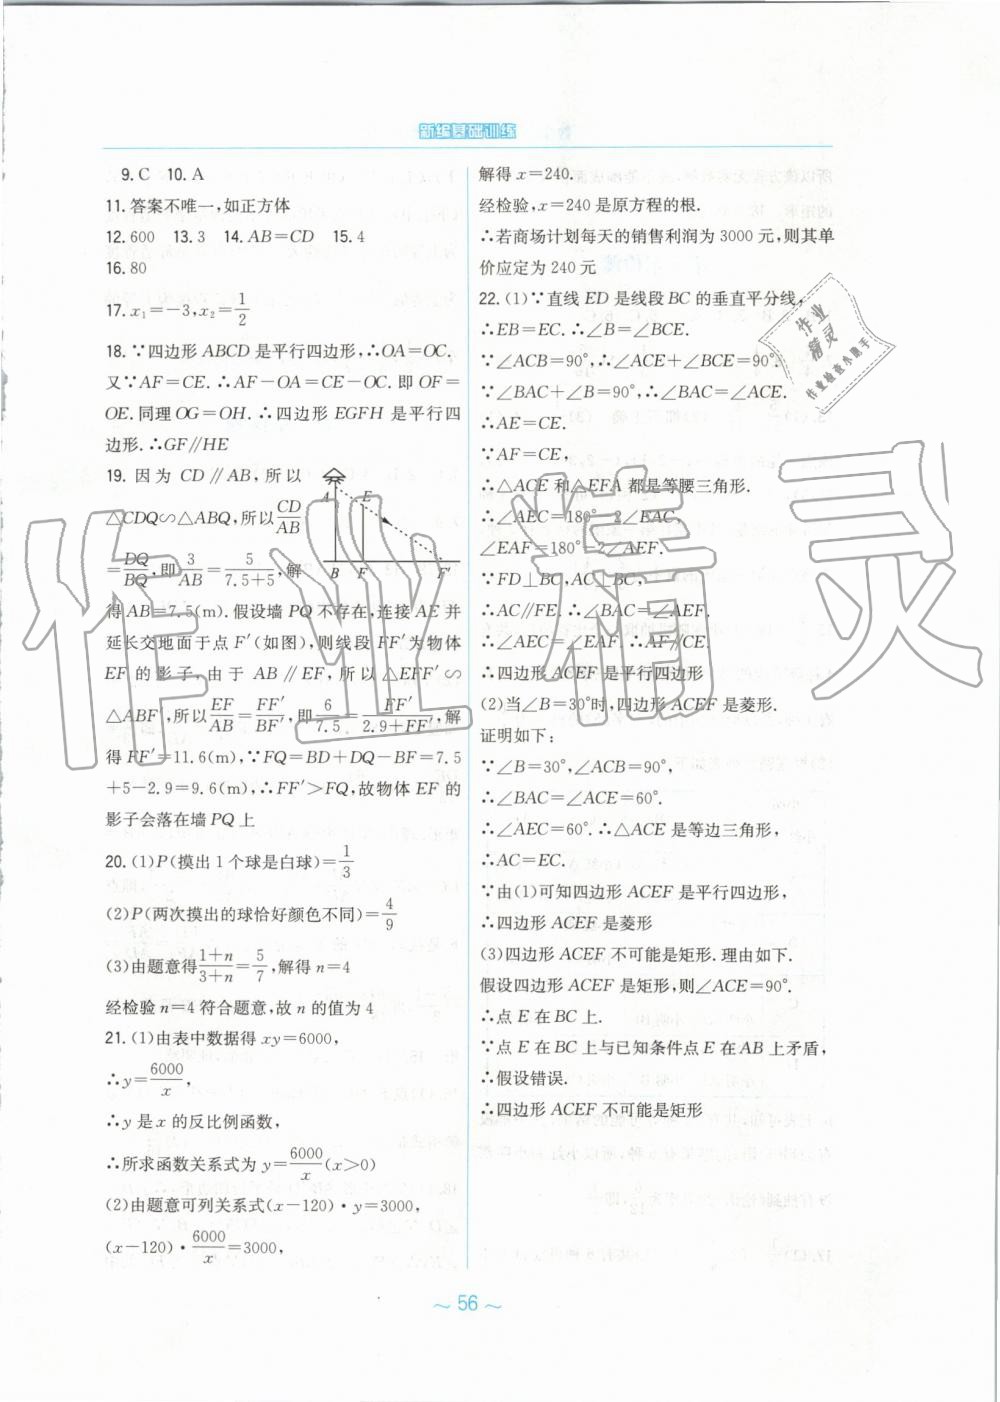 新编基础训练
9. C 10. A
11. 答案不唯一,如正方体
12. 600 13. 3 14. AB=CD 15. 4
16. 80
17. x₁=-3, x₂=1/2
18. ∵四边形 ABCD 是平行四边形,∴OA=OC.
又∵AF=CE. ∴AF-OA=CE-OC. 即 OF=
OE. 同理 OG=OH. ∴四边形 EGFH 是平行四
边形. ∴GF∥HE
19. 因为 CD∥AB,所以
△CDQ∽△ABQ,所以CD/AB
=DQ/BQ,即3/AB=5/(7.5+5),解
得 AB=7.5(m). 假设墙 PQ 不存在,连接 AE 并
延长交地面于点 F′(如图),则线段 FF′为物体
EF 的影子,由于 AB∥EF,所以△EFF′∽
△ABF′,所以EF/AB=FF′/BF′,即6/7.5=FF′/(2.9+FF′),解
得 FF′=11.6(m),∵FQ=BD+DQ-BF=7.5
+5-2.9=9.6(m),∴FF′>FQ,故物体 EF 的
影子会落在墙 PQ 上
A E
B F F′
20. (1)P(摸出 1 个球是白球)=1/3
(2)P(两次摸出的球恰好颜色不同)=4/9
(3)由题意得(1+n)/(3+n)=5/7,解得 n=4
经检验 n=4 符合题意,故 n 的值为 4
21. (1)由表中数据得 xy=6000,
∴y=6000/x,
∴y 是 x 的反比例函数,
∴所求函数关系式为 y=6000/x(x>0)
(2)由题意可列关系式(x-120)·y=3000,
(x-120)·6000/x=3000,
解得 x=240.
经检验,x=240 是原方程的根.
∴若商场计划每天的销售利润为 3000 元,则其单
价应定为 240 元
22. (1)∵直线 ED 是线段 BC 的垂直平分线,
∴EB=EC. ∴∠B=∠BCE.
∵∠ACB=90°,∴∠ACE+∠BCE=90°.
∵∠BAC+∠B=90°,∴∠BAC=∠ACE.
∴AE=CE.
∵AF=CE,
∴△ACE 和△EFA 都是等腰三角形.
∴∠AEC=180°-2∠EAC,
∠EAF=180°-2∠AEF.
∵FD⊥BC,AC⊥BC,
∴AC∥FE. ∴∠BAC=∠AEF.
∴∠AEC=∠EAF. ∴AF∥CE.
∴四边形 ACEF 是平行四边形
(2)当∠B=30°时,四边形 ACEF 是菱形.
证明如下:
∵∠B=30°,∠ACB=90°,
∴∠BAC=∠ACE=60°.
∴∠AEC=60°. ∴△ACE 是等边三角形,
∴AC=EC.
∵由(1)可知四边形 ACEF 是平行四边形,
∴四边形 ACEF 是菱形
(3)四边形 ACEF 不可能是矩形. 理由如下.
假设四边形 ACEF 是矩形,则∠ACE=90°.
∴点 E 在 BC 上.
∵点 E 在 BC 上与已知条件点 E 在 AB 上矛盾,
∴假设错误.
∴四边形 ACEF 不可能是矩形
~ 56 ~
作业精灵
作业
精灵
作业检查小助手